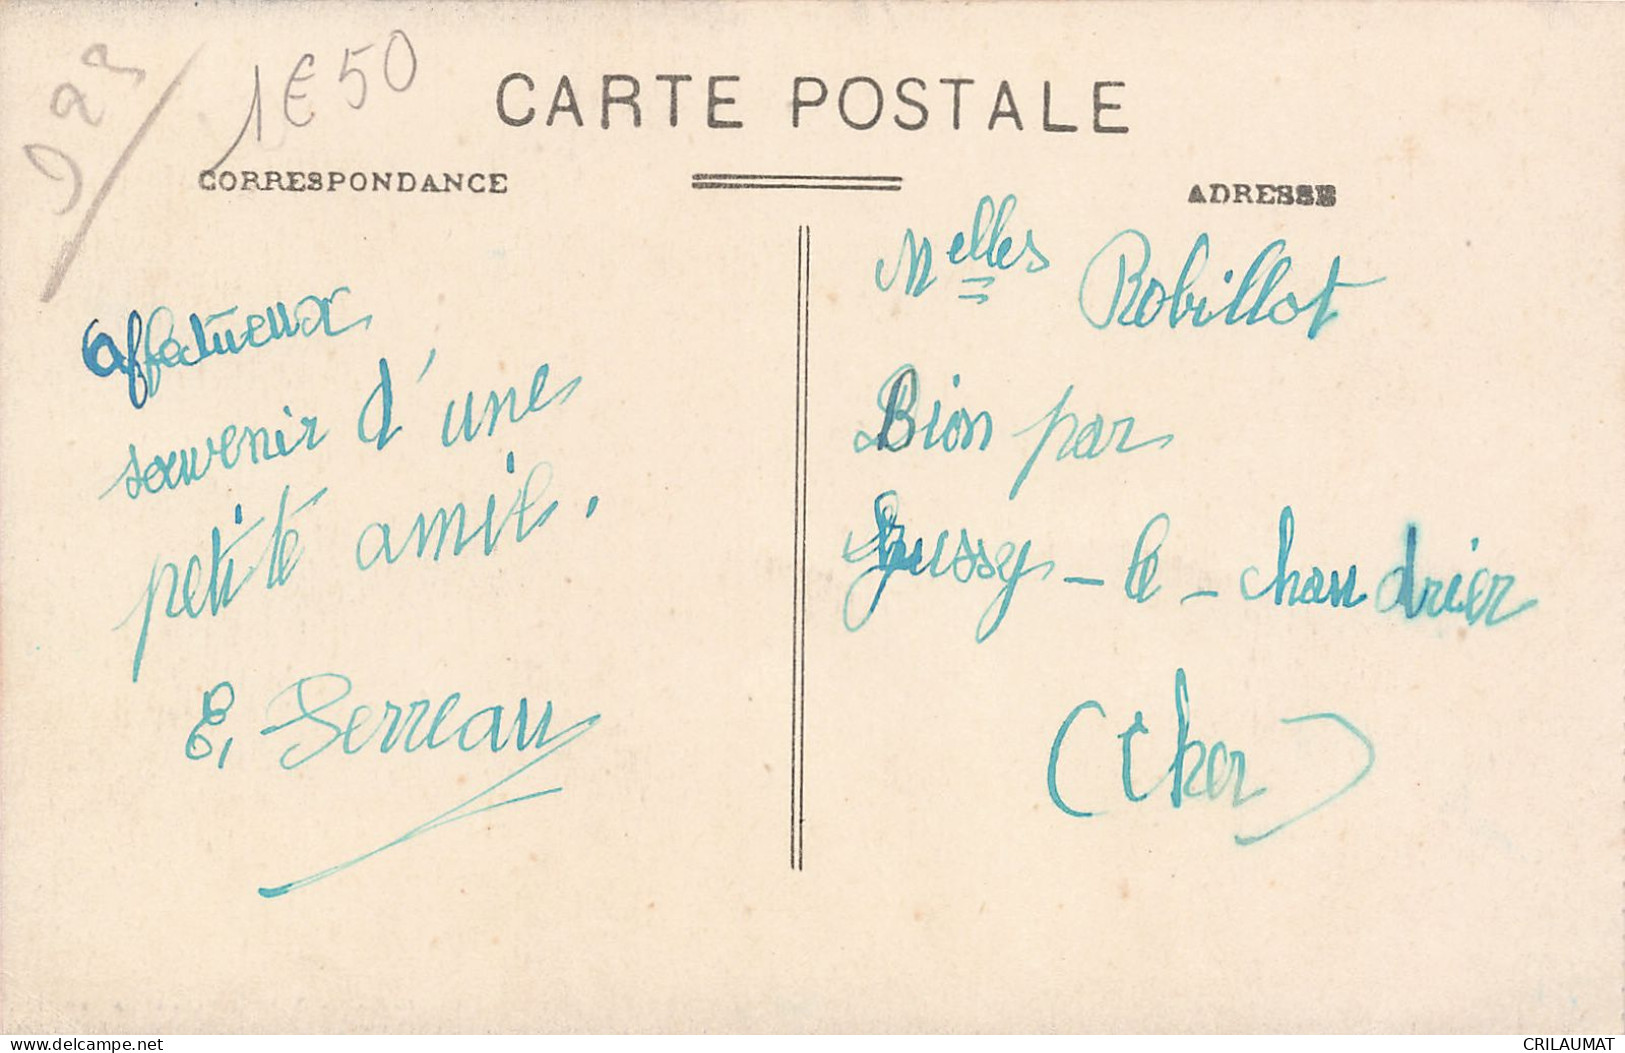 1€50
CARTE POSTALE
CORRESPONDANCE
ADRESSE
affectueux
souvenir d'une
petite amie.
E. Serreau
Melles Robillot
Bion par
Jussy-le-chaudrier
(Cher)
www.delcampe.net
CRILAUMAT